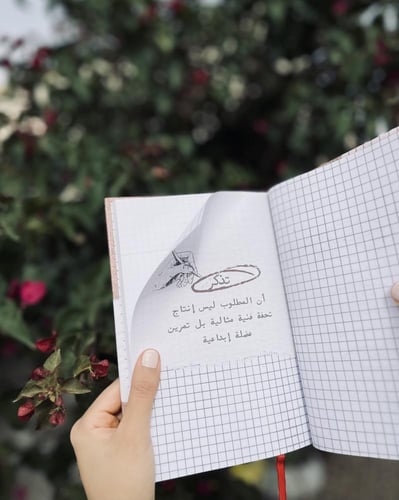 تذكر
أن المطلوب ليس إنتاج
تحفة فنية مثالية بل تمرين
عضلة إبداعية